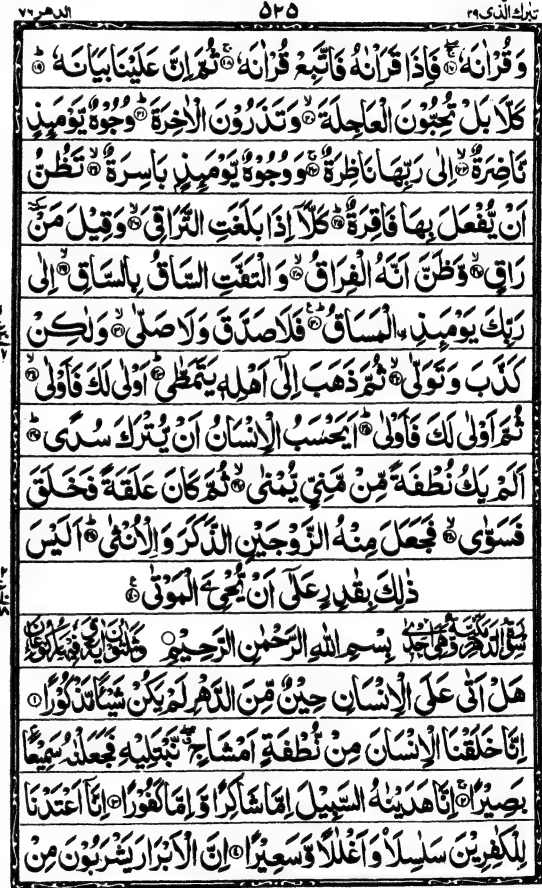 تبٰرك الذى ٢٩ ٥٢٥ الدهر ٧٦
وَقُرْاٰنَهٗ ۚۖ‏ ﴿۱۷﴾ فَاِذَا قَرَاْنٰهُ فَاتَّبِعْ قُرْاٰنَهٗ ۚ‏ ﴿۱۸﴾ ثُمَّ اِنَّ عَلَيْنَا بَيَانَهٗ ؕ‏ ﴿۱۹﴾
كَلَّا بَلْ تُحِبُّوْنَ الْعَاجِلَةَ ۙ‏ ﴿۲۰﴾ وَتَذَرُوْنَ الْاٰخِرَةَ ؕ‏ ﴿۲۱﴾ وُجُوْهٌ يَّوْمَىِٕذٍ
نَّاضِرَةٌ ۙ‏ ﴿۲۲﴾ اِلٰى رَبِّهَا نَاظِرَةٌ ۚ‏ ﴿۲۳﴾ وَوُجُوْهٌ يَّوْمَىِٕذٍۭ بَاسِرَةٌ ۙ‏ ﴿۲۴﴾ تَظُنُّ
اَنْ يُّفْعَلَ بِهَا فَاقِرَةٌ ؕ‏ ﴿۲۵﴾ كَلَّاۤ اِذَا بَلَغَتِ التَّرَاقِىَ ۙ‏ ﴿۲۶﴾ وَقِيْلَ مَنْ ٚ
رَاقٍ ۙ‏ ﴿۲۷﴾ وَّظَنَّ اَنَّهُ الْفِرَاقُ ۙ‏ ﴿۲۸﴾ وَالْتَفَّتِ السَّاقُ بِالسَّاقِ ۙ‏ ﴿۲۹﴾ اِلٰى
رَبِّكَ يَوْمَىِٕذِ ۨالْمَسَاقُ ؕ‏ ﴿۳۰﴾ فَلَا صَدَّقَ وَلَا صَلّٰى ۙ‏ ﴿۳۱﴾ وَلٰكِنْ
كَذَّبَ وَتَوَلّٰى ۙ‏ ﴿۳۲﴾ ثُمَّ ذَهَبَ اِلٰٓى اَهْلِهٖ يَتَمَطّٰى ؕ‏ ﴿۳۳﴾ اَوْلٰى لَكَ فَاَوْلٰى ۙ‏ ﴿۳۴﴾
ثُمَّ اَوْلٰى لَكَ فَاَوْلٰى ؕ‏ ﴿۳۵﴾ اَيَحْسَبُ الْاِنْسَانُ اَنْ يُّتْرَكَ سُدًى ؕ‏ ﴿۳۶﴾
اَلَمْ يَكُ نُطْفَةً مِّنْ مَّنِىٍّ يُّمْنٰى ۙ‏ ﴿۳۷﴾ ثُمَّ كَانَ عَلَقَةً فَخَلَقَ
فَسَوّٰى ۙ‏ ﴿۳۸﴾ فَجَعَلَ مِنْهُ الزَّوْجَيْنِ الذَّكَرَ وَالْاُنْثٰى ؕ‏ ﴿۳۹﴾ اَلَيْسَ
ذٰلِكَ بِقٰدِرٍ عَلٰٓى اَنْ يُّحْیِۦَ الْمَوْتٰى ﴿۴۰﴾
بِسْمِ اللّٰهِ الرَّحْمٰنِ الرَّحِيْمِ
هَلْ اَتٰى عَلَى الْاِنْسَانِ حِيْنٌ مِّنَ الدَّهْرِ لَمْ يَكُنْ شَيْـًٔا مَّذْكُوْرًا ﴿۱﴾
اِنَّا خَلَقْنَا الْاِنْسَانَ مِنْ نُّطْفَةٍ اَمْشَاجٍ ۖ نَّبْتَلِيْهِ فَجَعَلْنٰهُ سَمِيْعًۢا
بَصِيْرًا ۚ ﴿۲﴾ اِنَّا هَدَيْنٰهُ السَّبِيْلَ اِمَّا شَاكِرًا وَّاِمَّا كَفُوْرًا ﴿۳﴾ اِنَّاۤ اَعْتَدْنَا
لِلْكٰفِرِيْنَ سَلٰسِلَا۟ وَاَغْلٰلًا وَّسَعِيْرًا ﴿۴﴾ اِنَّ الْاَبْرَارَ يَشْرَبُوْنَ مِنْ